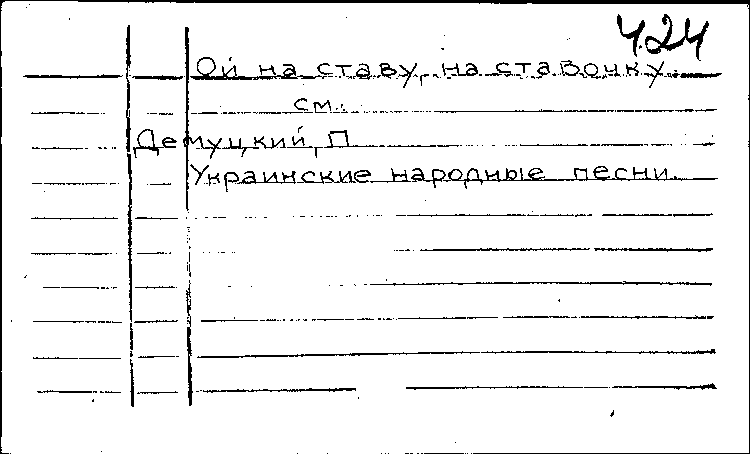 424
Ой на ставу, на ставочку.
см.
Демуцкий, П
Украинские народные песни.